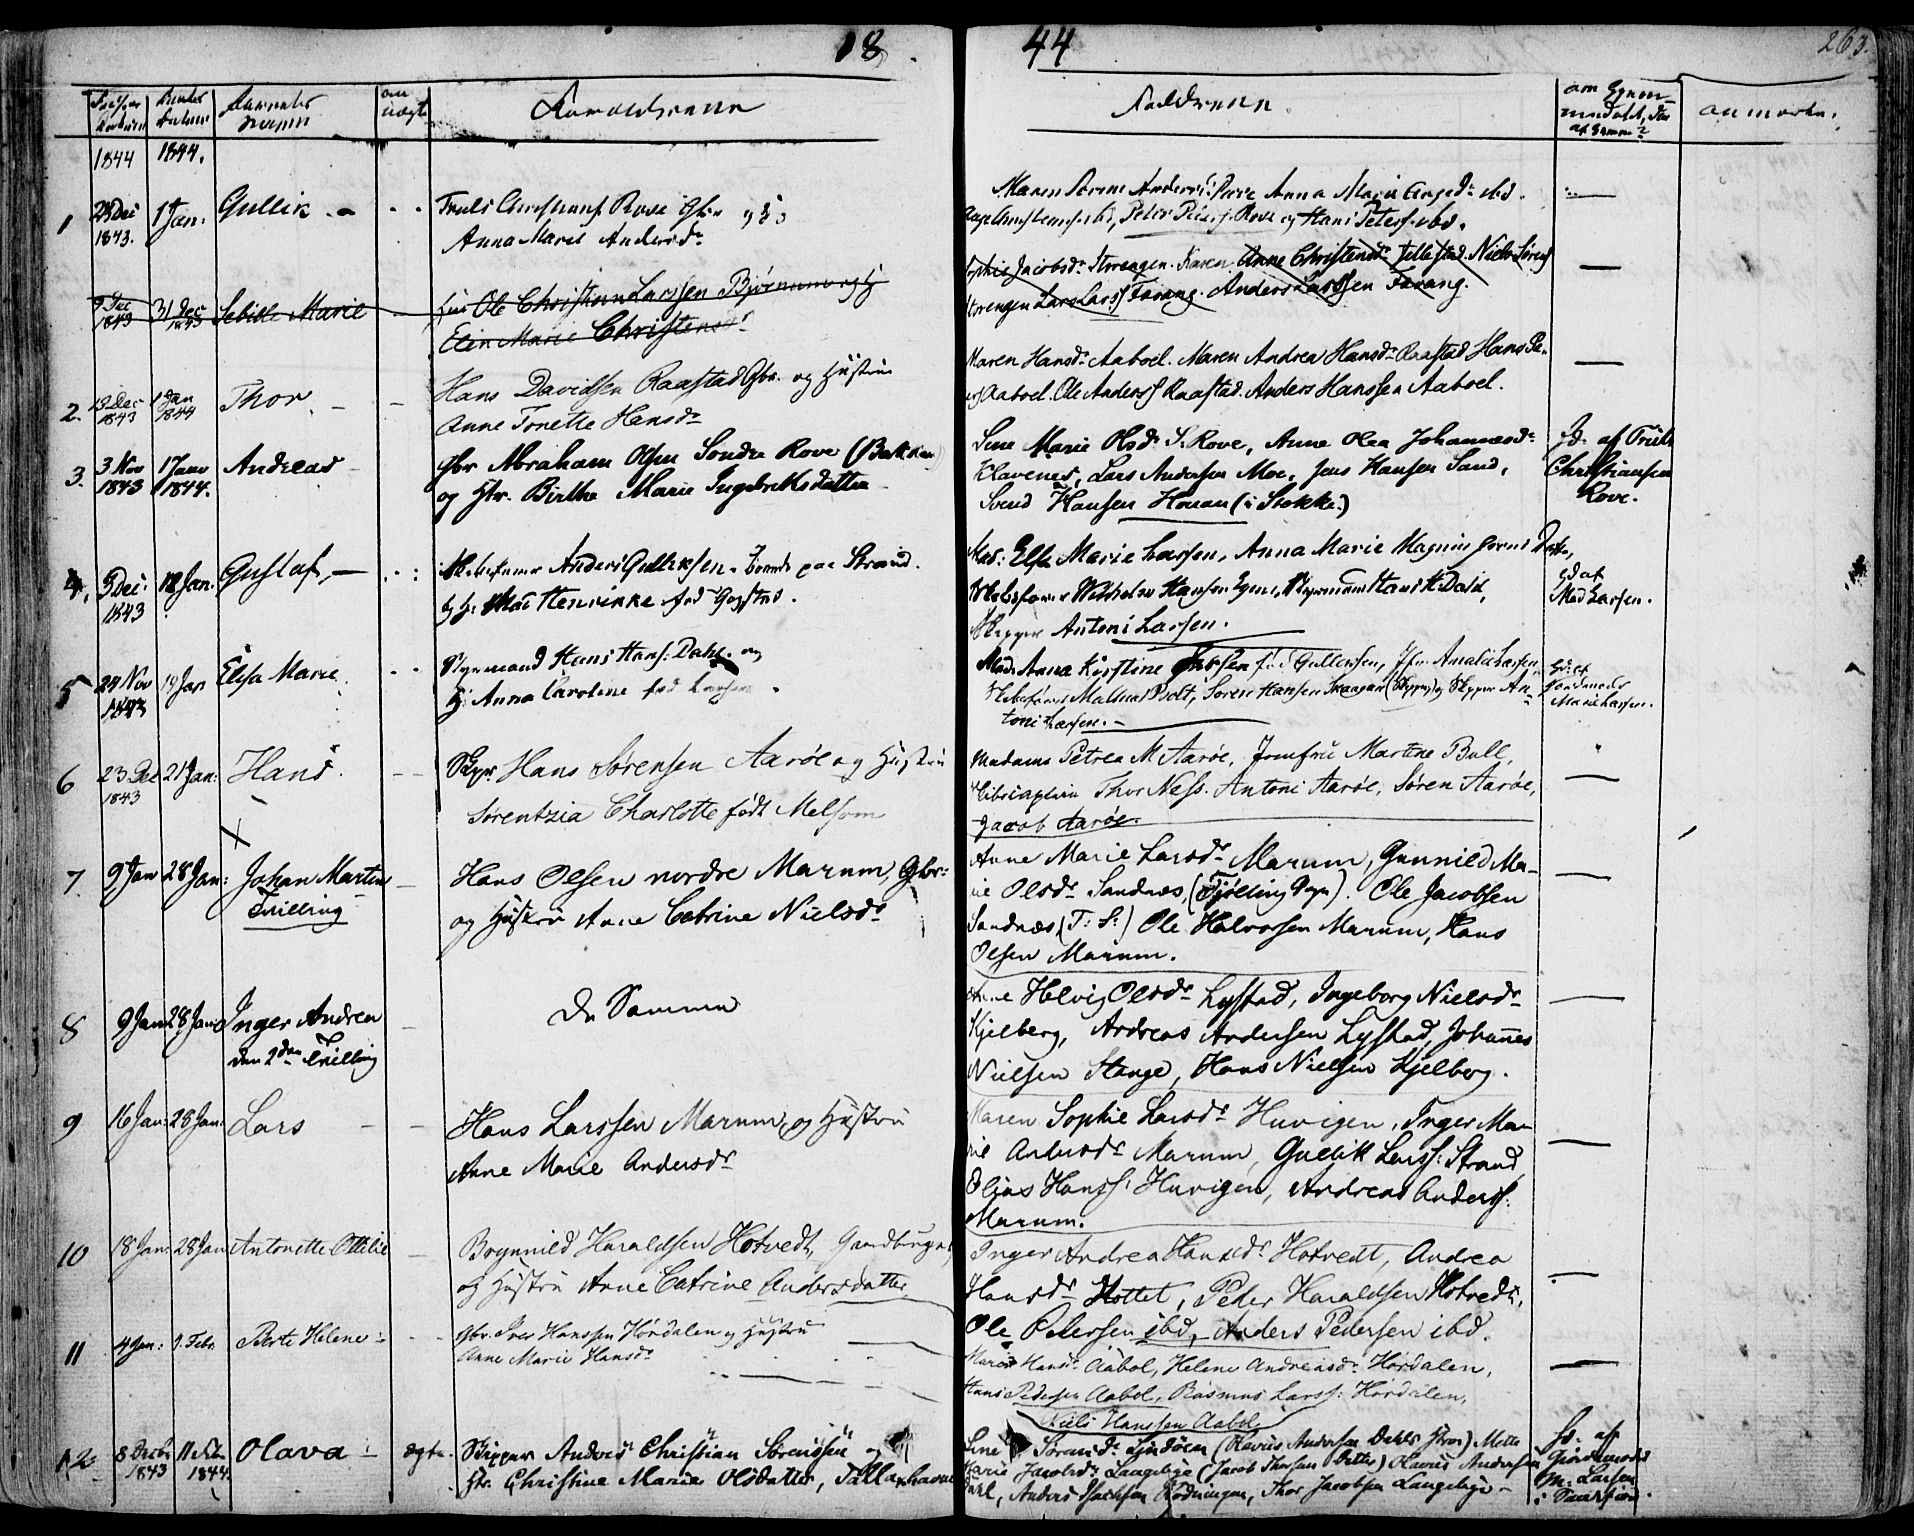 18 44
263.
Forældrene
Faddrene.
anmærkn.
1844 1844.
1 28 Dec 1843. 1 Jan: Gullik
Truls Christians. Rove Gbr. og H
Anna Marie Andersdr
Maren Anders: Rove Anna Marie ibd.
Peter Rove og Hans Peters. ibd.
9 Dec 1843 31 Dec 1843 Sebille Marie
Ole Christian Larssen Bjørnum og H
Elen Marie Christensdr
Sophie Jacobsdr Storengen. Karen Anne Christensdr Jellestad. Niels Sørens
Storengen Lars Larss Farang. Anders Larssen Farang.
2. 13 Dec 1843 1 Jan 1844 Thor.
Hans Davidsen Raastad Gbr. og Hustru
Anne Tonette Hansdr
Maren Hansdr Aaboel. Maren Andrea Hansdr Raastad Hans Pe-
ders Aaboel. Ole Anderss Raastad. Anders Hanssen Aaboel.
3. 3 Nov 1843 1 Janv 1844. Andreas
Gbr Abraham Olsen Sondre Rove (Bakken)
og Hstr. Birthe Marie Ingebrethsdatter
Lene Marie Olsdr S. Rove, Anne Olea Johannesdr
Klavenes, Lars Andersen Moe, Jens Hansen Sand,
Svend Hansen Honan (i Stokke.)
Gd. af Truls
Christiansen
Rove.
4. 5 Dec: 1843 12 Jan. Gustaf,
Anders Gulliksen boende paa Strand.
og H: Henrikke fød Gogstad.
Mad: Else Marie Larssen, Anna Marie Magnine
Wilhelm Hansen Styrmand Hans H. Dahl,
Skipper Antoni Larssen.
Gd af
Mad Larsen.
5 24 Nov 1843 14 Jan Elisa Marie
Styrmand Hans Hans: Dahl. og
H: Anna Caroline fød Larssen.
Mad: Anna Kirstine Jfr: Amalie Larssen,
Søren Hansen (Skipper) og Skipper An-
toni Larssen.
Gd: af
Jordemoder
Marie Larssen.
6 23 Dec 1843 21 Jan: Hans.
Skpr Hans Sørensen Aarøe og Hustru
Sørentzia Charlotte født Melsom
Madame Petrea M Aarøe, Jomfrue Martine Bull,
Thor Næss. Antoni Aarøe, Søren Aarøe,
Jacob Aarøe.
7 9 Jan 28 Jan: Johan Martin
Tvilling
Hans Olsen nordre Marum, Gbr:
og Hustru Anne Catrine Nielsdr
Anne Marie Larsdr Marum, Gunnild Ma-
rie Olsdr Sandnæs, (Tjølling Sogn). Ole Jacobsen
Sandnæs, (T: S:) Ole Halvorsen Marum, Hans
Olsen Marum.
8 9 Jan 28 Jan Inger Andrea
den 2den Tvilling
De Samme
Anne Helvig Olsdr Lystad, Ingeborg Nielsdr
Kjelberg, Andreas Andersen Lystad, Johannes
Nielsen Stange, Hans Nielsen Kjelberg.
9 16 Jan: 28 Jan: Lars
Hans Larssen Marum, og Hustru
Anne Marie Andersdr
Maren Sophie Larsdr Huvigen, Inger Ma-
rie Andersdr Marum, Gullik Larss: Strand,
Elias Hanss: Huvigen, Andreas Anderss:
Marum.
10 18 Jan: 28 Jan Antonette Ottilie
Brynnild Haraldsen Hotvedt, Gaardbruger,
og Hustru Anne Catrine Andersdatter
Inger Andrea Hansdr Hotvedt, Andrea
Hansdr Hottet, Peder Haraldsen Hotvedt,
Ole Pedersen ibd, Anders Pedersen ibd.
11 4 Jan: 9. Febr Berte Helene
Gbr. Iver Hanssen Hørdalen og Hustru
Anne Marie Hansdr
Maren Hansdr Aabol, Helene Andreasdr Hørdalen,
Hans Pedersen Aabol, Rasmus Larss: Hørdalen,
Niels Hanssen Aabol.
12 8 Decbr 1843 11 1844. Olava ægte.
Skipper Anders Christian Sørensen og
Hr. Christine Marie Olsdatter,
Lene Sørensdr (Olavus Andersen Dahls Hstr) Mette
Marie Jacobsdr Langelige (Jacob Thorsen Datter) Olavus Andersen
Dahl, Anders Isachsen Rødningen, Thor Jacobsen Langelige
Gd. af
Giordemoder
M. Larsen